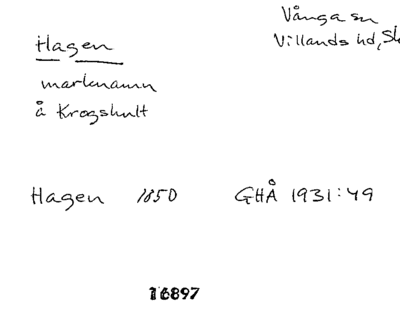 Hagen
Vånga sn
Villands hd, Sk
marknamn
å Krogshult
Hagen 1850 GHÅ 1931:49
16897